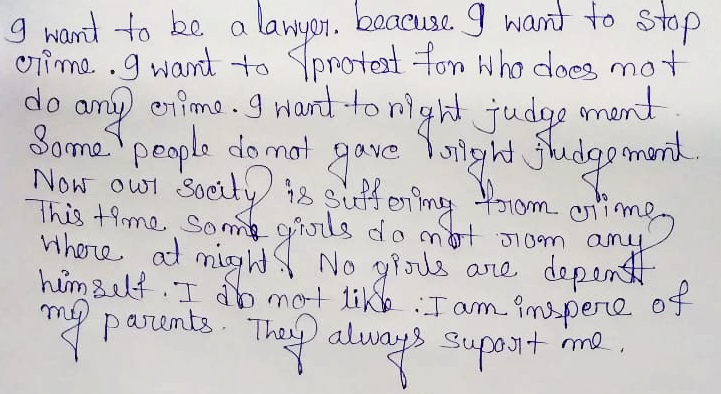 I want to be a lawyer. beacuse I want to stop
crime. I want to protest for who does not
do any crime. I want to right judge ment.
Some people do not gave right judgement.
Now our socity is suffering from crime.
This time some girls do not room any
where at night. No girls are depentt
himself. I do not like. I am inspere of
my parents. They always suport me.